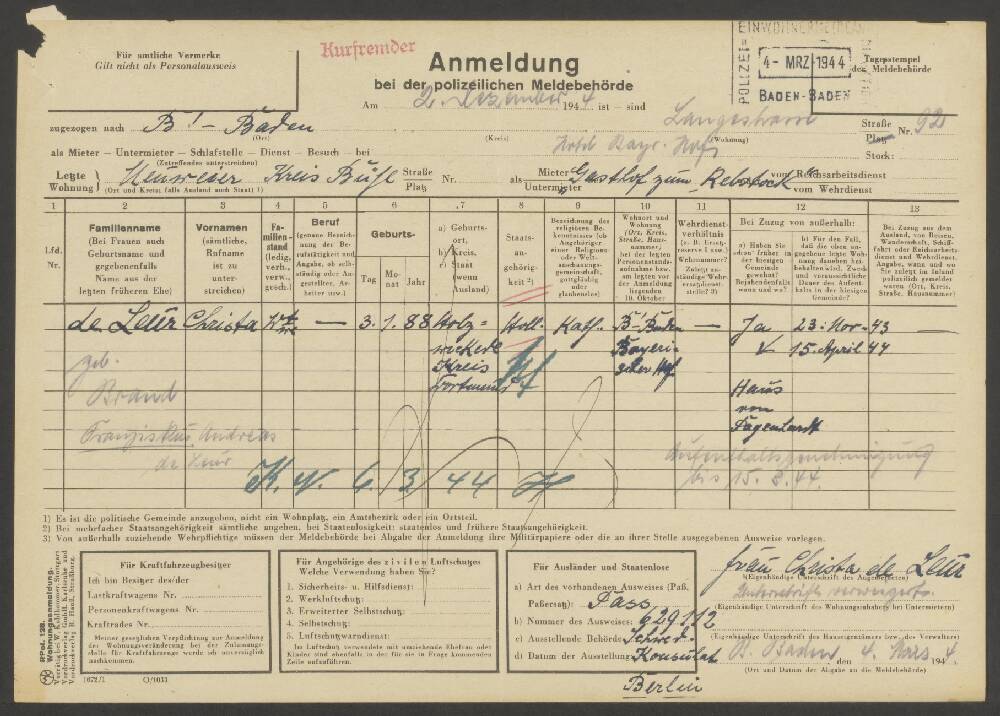 Für amtliche Vermerke
Gilt nicht als Personalausweis
Kurfremder
Anmeldung
bei der polizeilichen Meldebehörde
POLIZEI
4- MRZ 1944
BADEN-BADEN
Tagesstempel
der Meldebehörde
Am 2. Dezember 1944 ist – sind
zugezogen nach B' - Baden
(Ort)
(Kreis)
Langestrasse
(Wohnung)
Straße
Platz
Nr. 92
als Mieter – Untermieter – Schlafstelle – Dienst – Besuch – bei
(Zutreffendes unterstreichen)
Hotel Bayr. Hof
Stock:
Letzte
Wohnung
Neuweier Kreis Bühl
(Ort und Kreis; falls Ausland auch Staat) 1)
Straße
Platz
Nr.
als
Mieter
Untermieter
Gasthof zum Rebstock
vom Reichsarbeitsdienst
vom Wehrdienst
1 2 3 4 5 6 7 8 9 10 11 12 13
Lfd.
Nr.
Familienname
(Bei Frauen auch
Geburtsname und
gegebenenfalls
Name aus der
letzten früheren Ehe)
Vornamen
(sämtliche,
Rufname
ist zu
unter-
streichen)
Fa-
milien-
stand
(ledig,
verh.,
verw.,
gesch.)
Beruf
(genaue Bezeich-
nung der Be-
rufstätigkeit und
Angabe, ob selb-
ständig oder An-
gestellter, Ar-
beiter usw.)
Geburts-
Tag
Mo-
nat
Jahr
a) Geburts-
ort,
b) Kreis,
c) Staat
(wenn
Ausland)
Staats-
an-
gehörig-
keit 2)
Bezeichnung des
religiösen Be-
kenntnisses (ob
Angehöriger
einer Religions-
oder Welt-
anschauungs-
gemeinschaft,
gottgläubig
oder
glaubenslos)
Wohnort und
Wohnung
(Ort, Kreis,
Straße, Haus-
nummer)
bei der letzten
Personenstands-
aufnahme bzw.
am letzten vor
der Anmeldung
liegenden
10. Oktober
Wehrdienst-
verhältnis
(z. B. Ersatz-
reserve I usw.)
Wehrnummer?
Zuletzt zu-
ständige Wehr-
ersatzdienst-
stelle? 3)
Bei Zuzug von außerhalb:
a) Haben Sie
schon früher in
der hiesigen
Gemeinde
gewohnt?
Bejahendenfalls
wann und wo?
b) Für den Fall,
daß die oben an-
gegebene letzte Woh-
nung daneben bei-
behalten wird, Zweck
und voraussichtliche
Dauer des Aufent-
halts in der hiesigen
Gemeinde?
Bei Zuzug aus dem
Ausland, von Reisen,
Wanderschaft, Schiff-
fahrt oder Reichsarbeits-
dienst und Wehrdienst.
Angabe, wann und wo
Sie zuletzt im Inland
polizeilich gemeldet
waren (Ort, Kreis,
Straße, Hausnummer)
de Leur Christa — 3. 1. 88 Holz- Holl. Kath. B-Baden — Ja 23. Nov - 43 —
wickede
Kreis
Dortmund
Bayeri-
scher Hof
15. April 44
geb.
Brand
Haus
von
Franziskus, Andreas
de Leur
Aufenthaltsgenehmigung
bis 15. 8. 44.
K. N. 6. 3. 44
1) Es ist die politische Gemeinde anzugeben, nicht ein Wohnplatz, ein Amtsbezirk oder ein Ortsteil.
2) Bei mehrfacher Staatsangehörigkeit sämtliche angeben, bei Staatenlosigkeit: staatenlos und frühere Staatsangehörigkeit.
3) Von außerhalb zuziehende Wehrpflichtige müssen der Meldebehörde bei Abgabe der Anmeldung ihre Militärpapiere oder die an ihrer Stelle ausgegebenen Ausweise vorlegen.
RPol. 12B.
Wohnungsanmeldung.
Für Kraftfahrzeugbesitzer
Ich bin Besitzer des/der
Lastkraftwagens Nr.
Personenkraftwagens Nr.
Kraftrades Nr.
Meiner gesetzlichen Verpflichtung zur Anmeldung
der Wohnungsveränderung bei der Zulassungs-
stelle für Kraftfahrzeuge werde ich unverzüglich
nachkommen.
1672/I O/1033
Für Angehörige des zivilen Luftschutzes
Welche Verwendung haben Sie?
1. Sicherheits- u. Hilfsdienst:
2. Werkluftschutz:
3. Erweiterter Selbstschutz:
4. Selbstschutz:
5. Luftschutzwarndienst:
Im Luftschutz verwendete mit umziehende Ehefrau oder
Kinder sind ebenfalls in der für sie in Frage kommenden
Zeile aufzuführen.
Für Ausländer und Staatenlose
a) Art des vorhandenen Ausweises (Paß,
Paßersatz): Pass
b) Nummer des Ausweises: 629112
c) Ausstellende Behörde: Schwed.
d) Datum der Ausstellung: Konsulat
Berlin
Frau Christa de Leur
(Eigenhändige Unterschrift des Angemeldeten)
Unterschrift verweigert.
(Eigenhändige Unterschrift des Wohnungsinhabers bei Untermietern)
(Eigenhändige Unterschrift des Hauseigentümers bzw. des Verwalters)
B. Baden, den 4. März 1944
(Ort und Datum der Abgabe an die Meldebehörde)